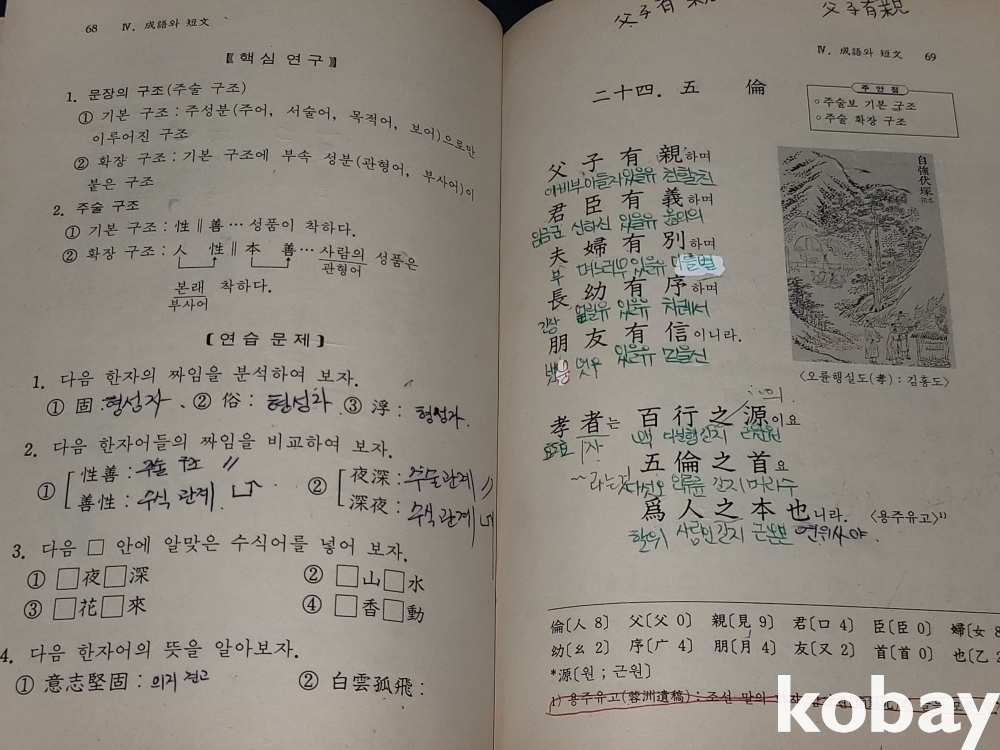 68 Ⅳ. 成語와 短文
〖핵심 연구〗
1. 문장의 구조(주술 구조)
① 기본 구조 : 주성분(주어, 서술어, 목적어, 보어)으로만
이루어진 구조
② 확장 구조 : 기본 구조에 부속 성분(관형어, 부사어)이
붙은 구조
2. 주술 구조
① 기본 구조 : 性 ∥ 善 … 성품이 착하다.
② 확장 구조 : 人 性 ∥ 本 善 … 사람의 성품은
관형어
본래 착하다.
부사어
〔연습 문제〕
1. 다음 한자의 짜임을 분석하여 보자.
① 固 : 형성자 ② 俗 : 형성자 ③ 浮 : 형성자
2. 다음 한자어들의 짜임을 비교하여 보자.
① 性善 : 주술 구조 〃 ② 夜深 : 주술관계 〃
善性 : 수식 관계 深夜 : 수식 관계
3. 다음 □ 안에 알맞은 수식어를 넣어 보자.
① □夜□深 ② □山□水
③ □花□來 ④ □香□動
4. 다음 한자어의 뜻을 알아보자.
① 意志堅固 : 의지 견고 ② 白雲孤飛 :
父子有親 父子有親
Ⅳ. 成語와 短文 69
二十四. 五 倫
주안점
○주술보 기본 구조
○주술 확장 구조
父子有親하며
아비부 아들자 있을유 친할친
君臣有義하며
임금군 신하신 있을유 옳을의
夫婦有別하며
부 며느리부 있을유 다를별
長幼有序하며
긴장 어릴유 있을유 차례서
朋友有信이니라.
벗붕 벗우 있을유 믿을신
自強伏塚
〈오륜행실도(孝) : 김홍도〉
孝者는 百行之源이요
효도효 자 일백백 다닐행 갈지 근원원
五倫之首요
~라는것 다섯오 인륜륜 갈지 머리수
爲人之本也니라. 〈용주유고〉¹⁾
할위 사람인 갈지 근본본 연위사야.
倫〔人 8〕 父〔父 0〕 親〔見 9〕 君〔口 4〕 臣〔臣 0〕 婦〔女 8
幼〔幺 2〕 序〔广 4〕 朋〔月 4〕 友〔又 2〕 首〔首 0〕 也〔乙 2
*源〔원 ; 근원〕
1) 용주유고(蓉洲遺稿) : 조선 말의
kobay